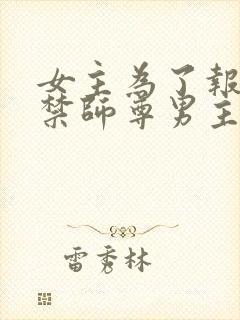 女主為了報
禁師尊男主
雷秀林